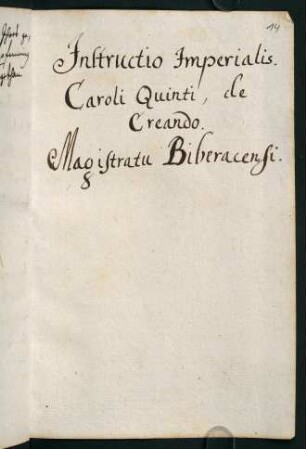 14
Instructio Imperialis.
Caroli Quinti, de
Creando.
Magistratu Biberacensi.